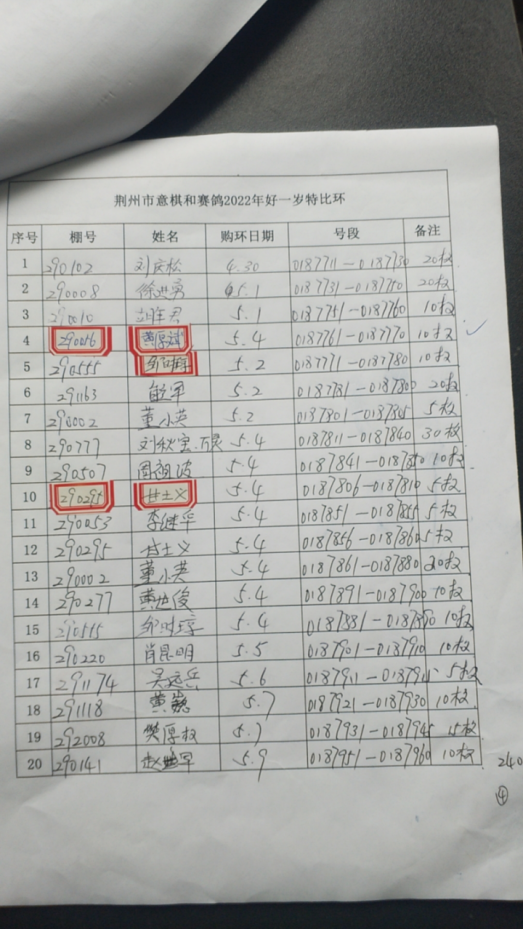 荆州市意棋和赛鸽2022年好一岁特比环
序号 棚号 姓名 购环日期 号段 备注
1 290102 刘庆松 4.30 0187711-0187730 20枚
2 290008 5.1 0187731-0187750 20枚
3 5.1 0187751-0187760 10枚
4 290056 黄厚斌 5.4 0187761-0187770 10枚
5 290555 5.2 0187771-0187780 10枚
6 291163 5.2 0187781-0187800 20枚
7 290002 董小英 5.2 0187801-0187805 5枚
8 290777 刘秋宝. 5.4 0187811-0187840 30枚
9 290507 周祖波 5.4 0187841-0187850 10枚
10 290295 甘士义 5.4 0187806-0187810 5枚
11 290053 李继华 5.4 0187851-0187855 5枚
12 290295 甘士义 5.4 0187856-0187860 5枚
13 290002 董小英 5.4 0187861-0187880 20枚
14 290277 黄世俊 5.4 0187891-0187900 10枚
15 290555 5.4 0187881-0187890 10枚
16 290220 肖昆明 5.5 0187901-0187910 10枚
17 291174 吴远兵 5.6 5枚
18 291118 黄巍 5.7 0187921-0187930 10枚
19 292008 樊厚权 5.7 0187931-0187945 15枚
20 290141 5.9 0187951-0187960 10枚
240
④